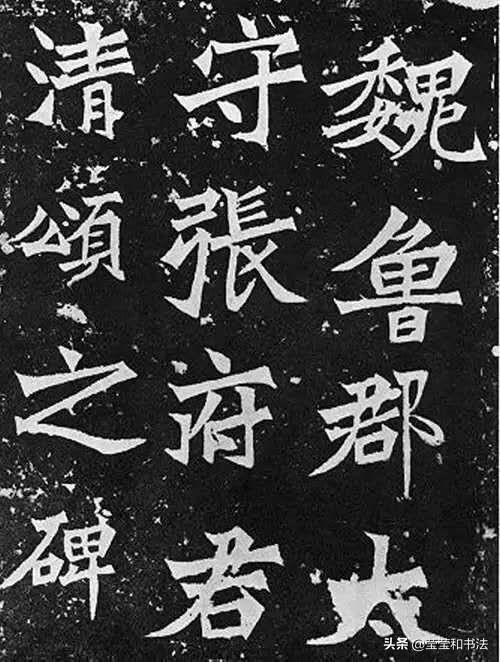 魏魯郡太
守張府君
清頌之碑
头条 @莹莹和书法